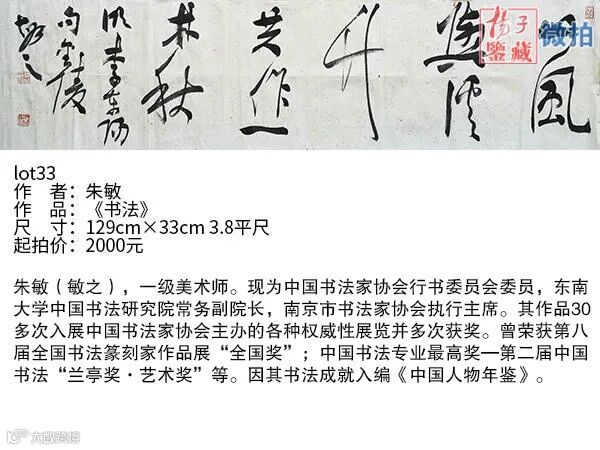 風
共作一
秋
明李東陽
句金陵
敏之
揚子
鑒藏
微拍
lot33
作 者：朱敏
作 品：《书法》
尺 寸：129cm×33cm 3.8平尺
起拍价：2000元
朱敏（敏之），一级美术师。现为中国书法家协会行书委员会委员，东南
大学中国书法研究院常务副院长，南京市书法家协会执行主席。其作品30
多次入展中国书法家协会主办的各种权威性展览并多次获奖。曾荣获第八
届全国书法篆刻家作品展“全国奖”；中国书法专业最高奖—第二届中国
书法“兰亭奖·艺术奖”等。因其书法成就入编《中国人物年鉴》。
大数跨境